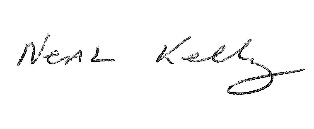 Neal Kelly